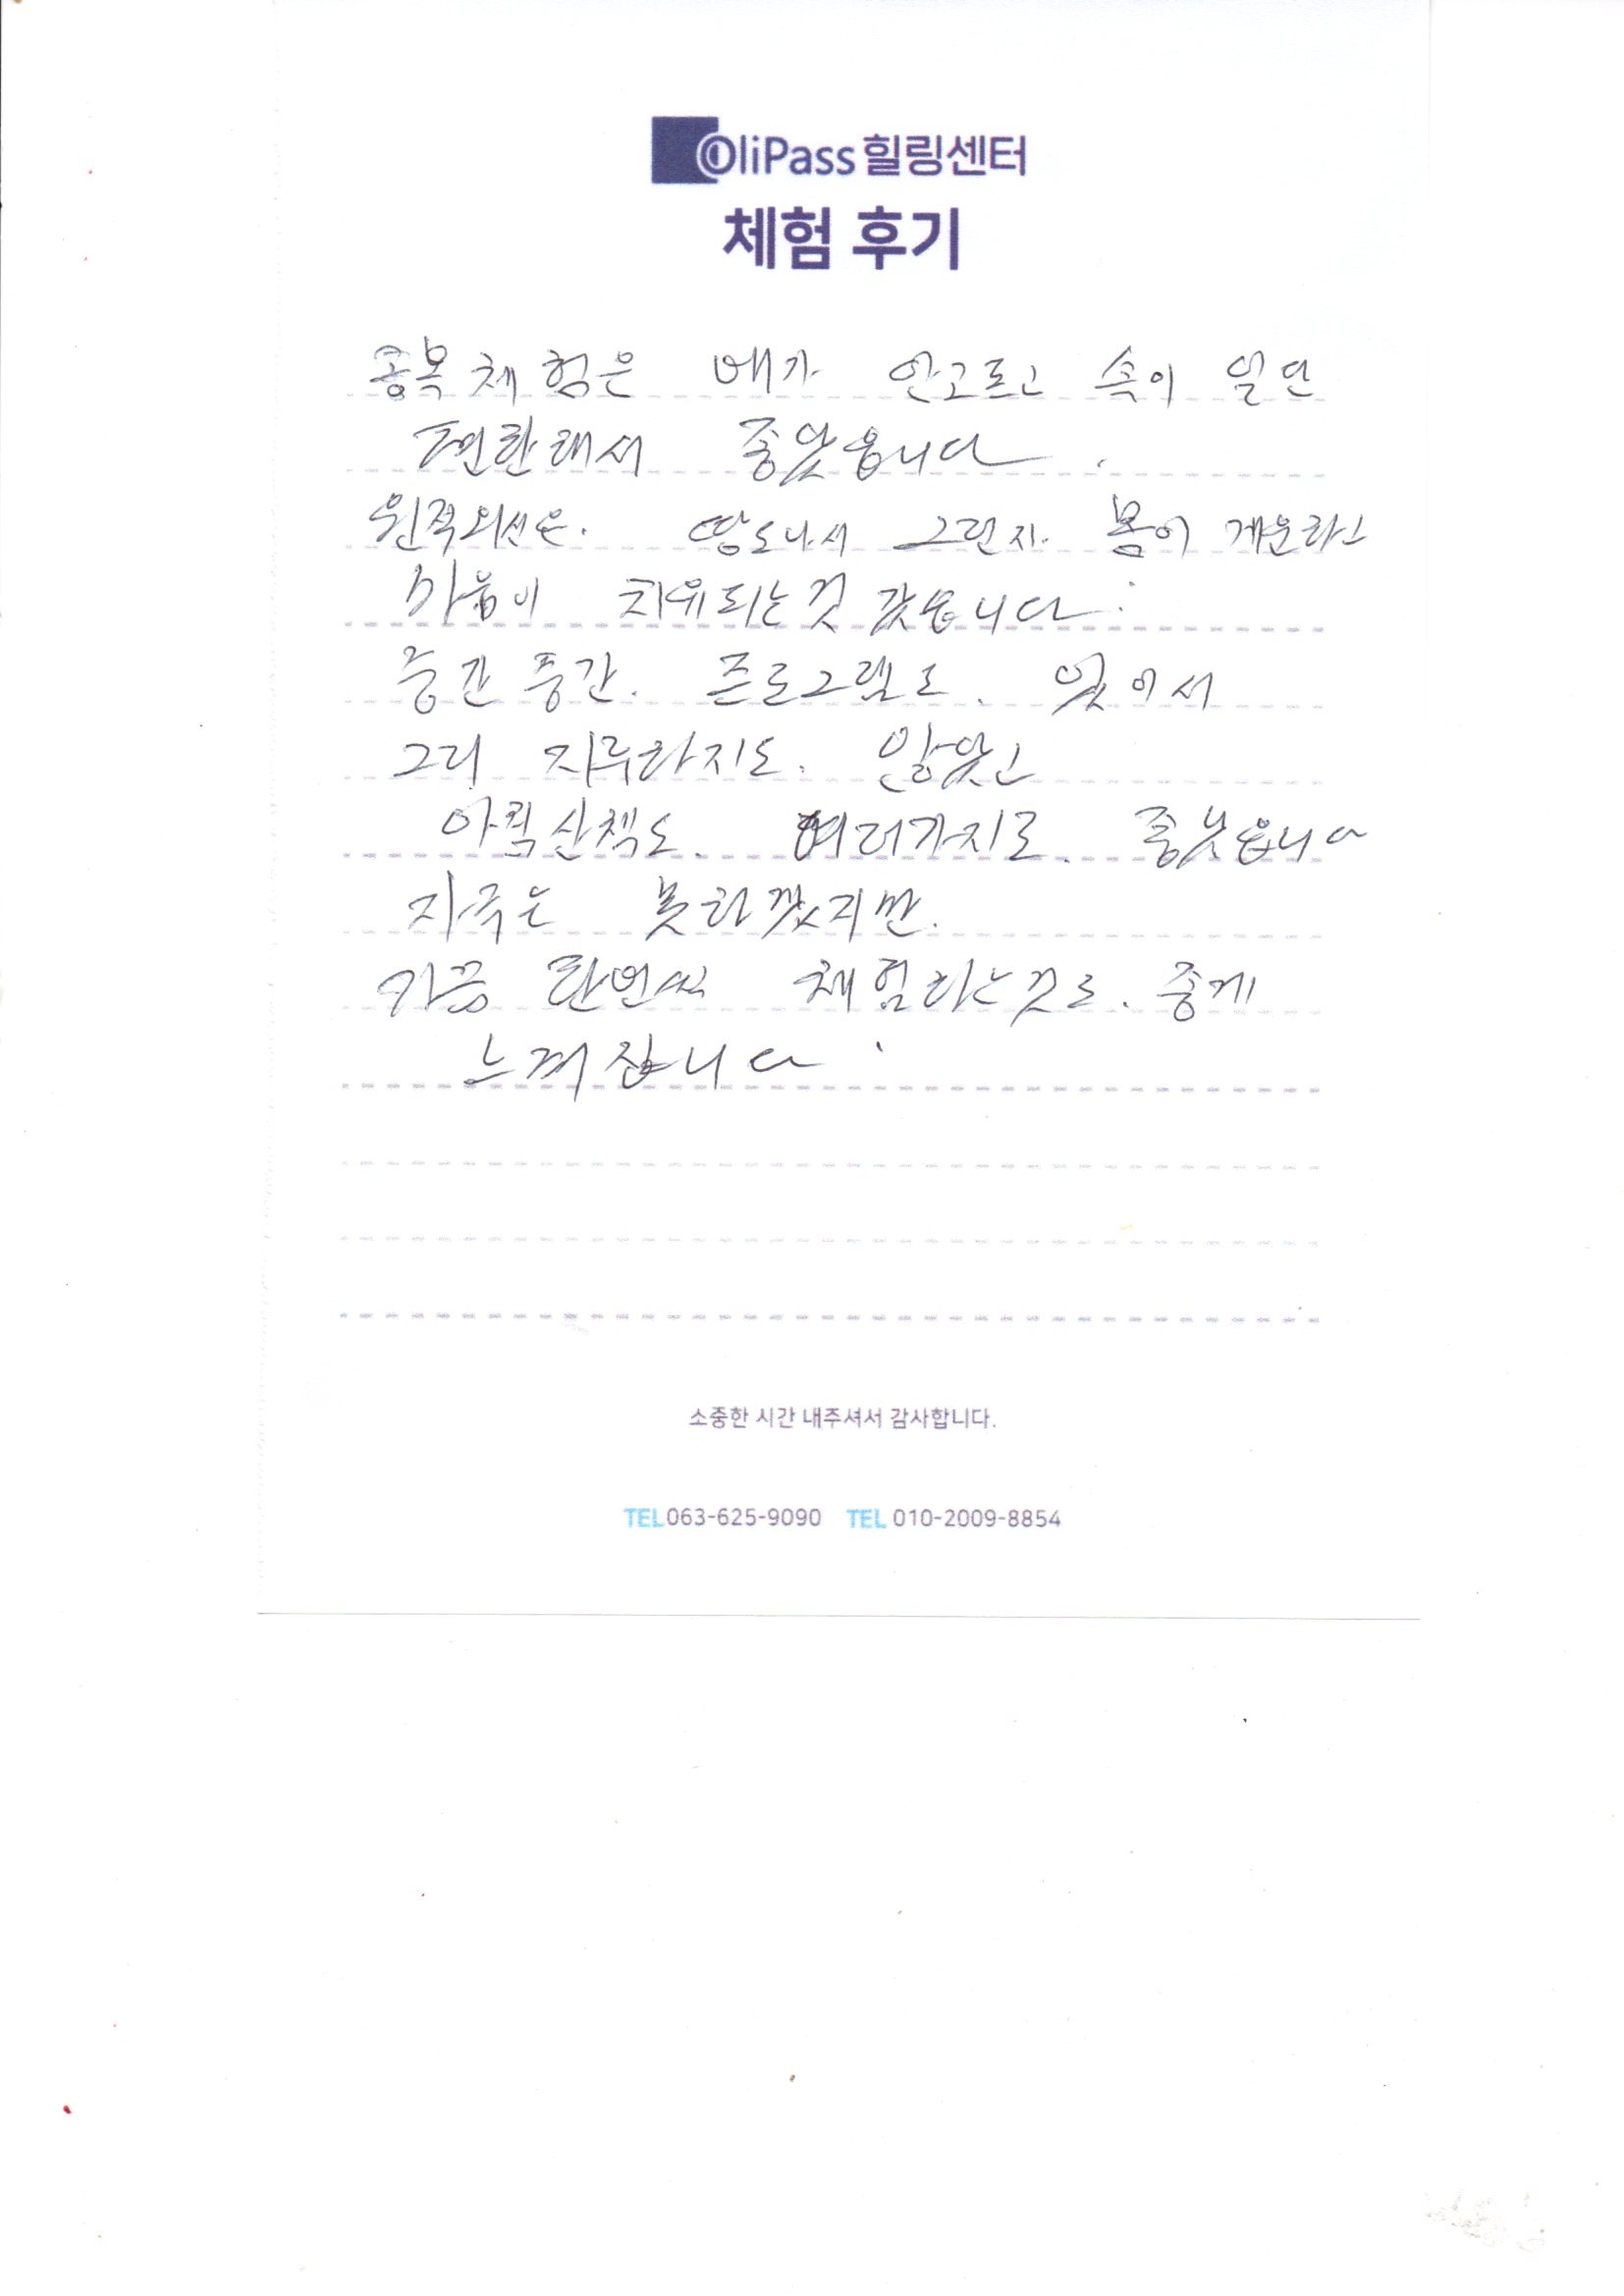 OliPass 힐링센터
체험 후기
체험은 배가 안고르고 속이 일단
편한해서 좋았읍니다.
원적외선은. 땀도나서 그런지. 몸이 개운하고
마음이 치유되는것 같습니다.
중간 중간. 프로그램도. 있어서
그리 지루하지도. 않았고
아침산책도. 여러가지로. 좋았읍니다
자주는 못하겠지만.
가끔 한번씩 체험하는것도. 좋게
느껴집니다.
소중한 시간 내주셔서 감사합니다.
TEL 063-625-9090 TEL 010-2009-8854